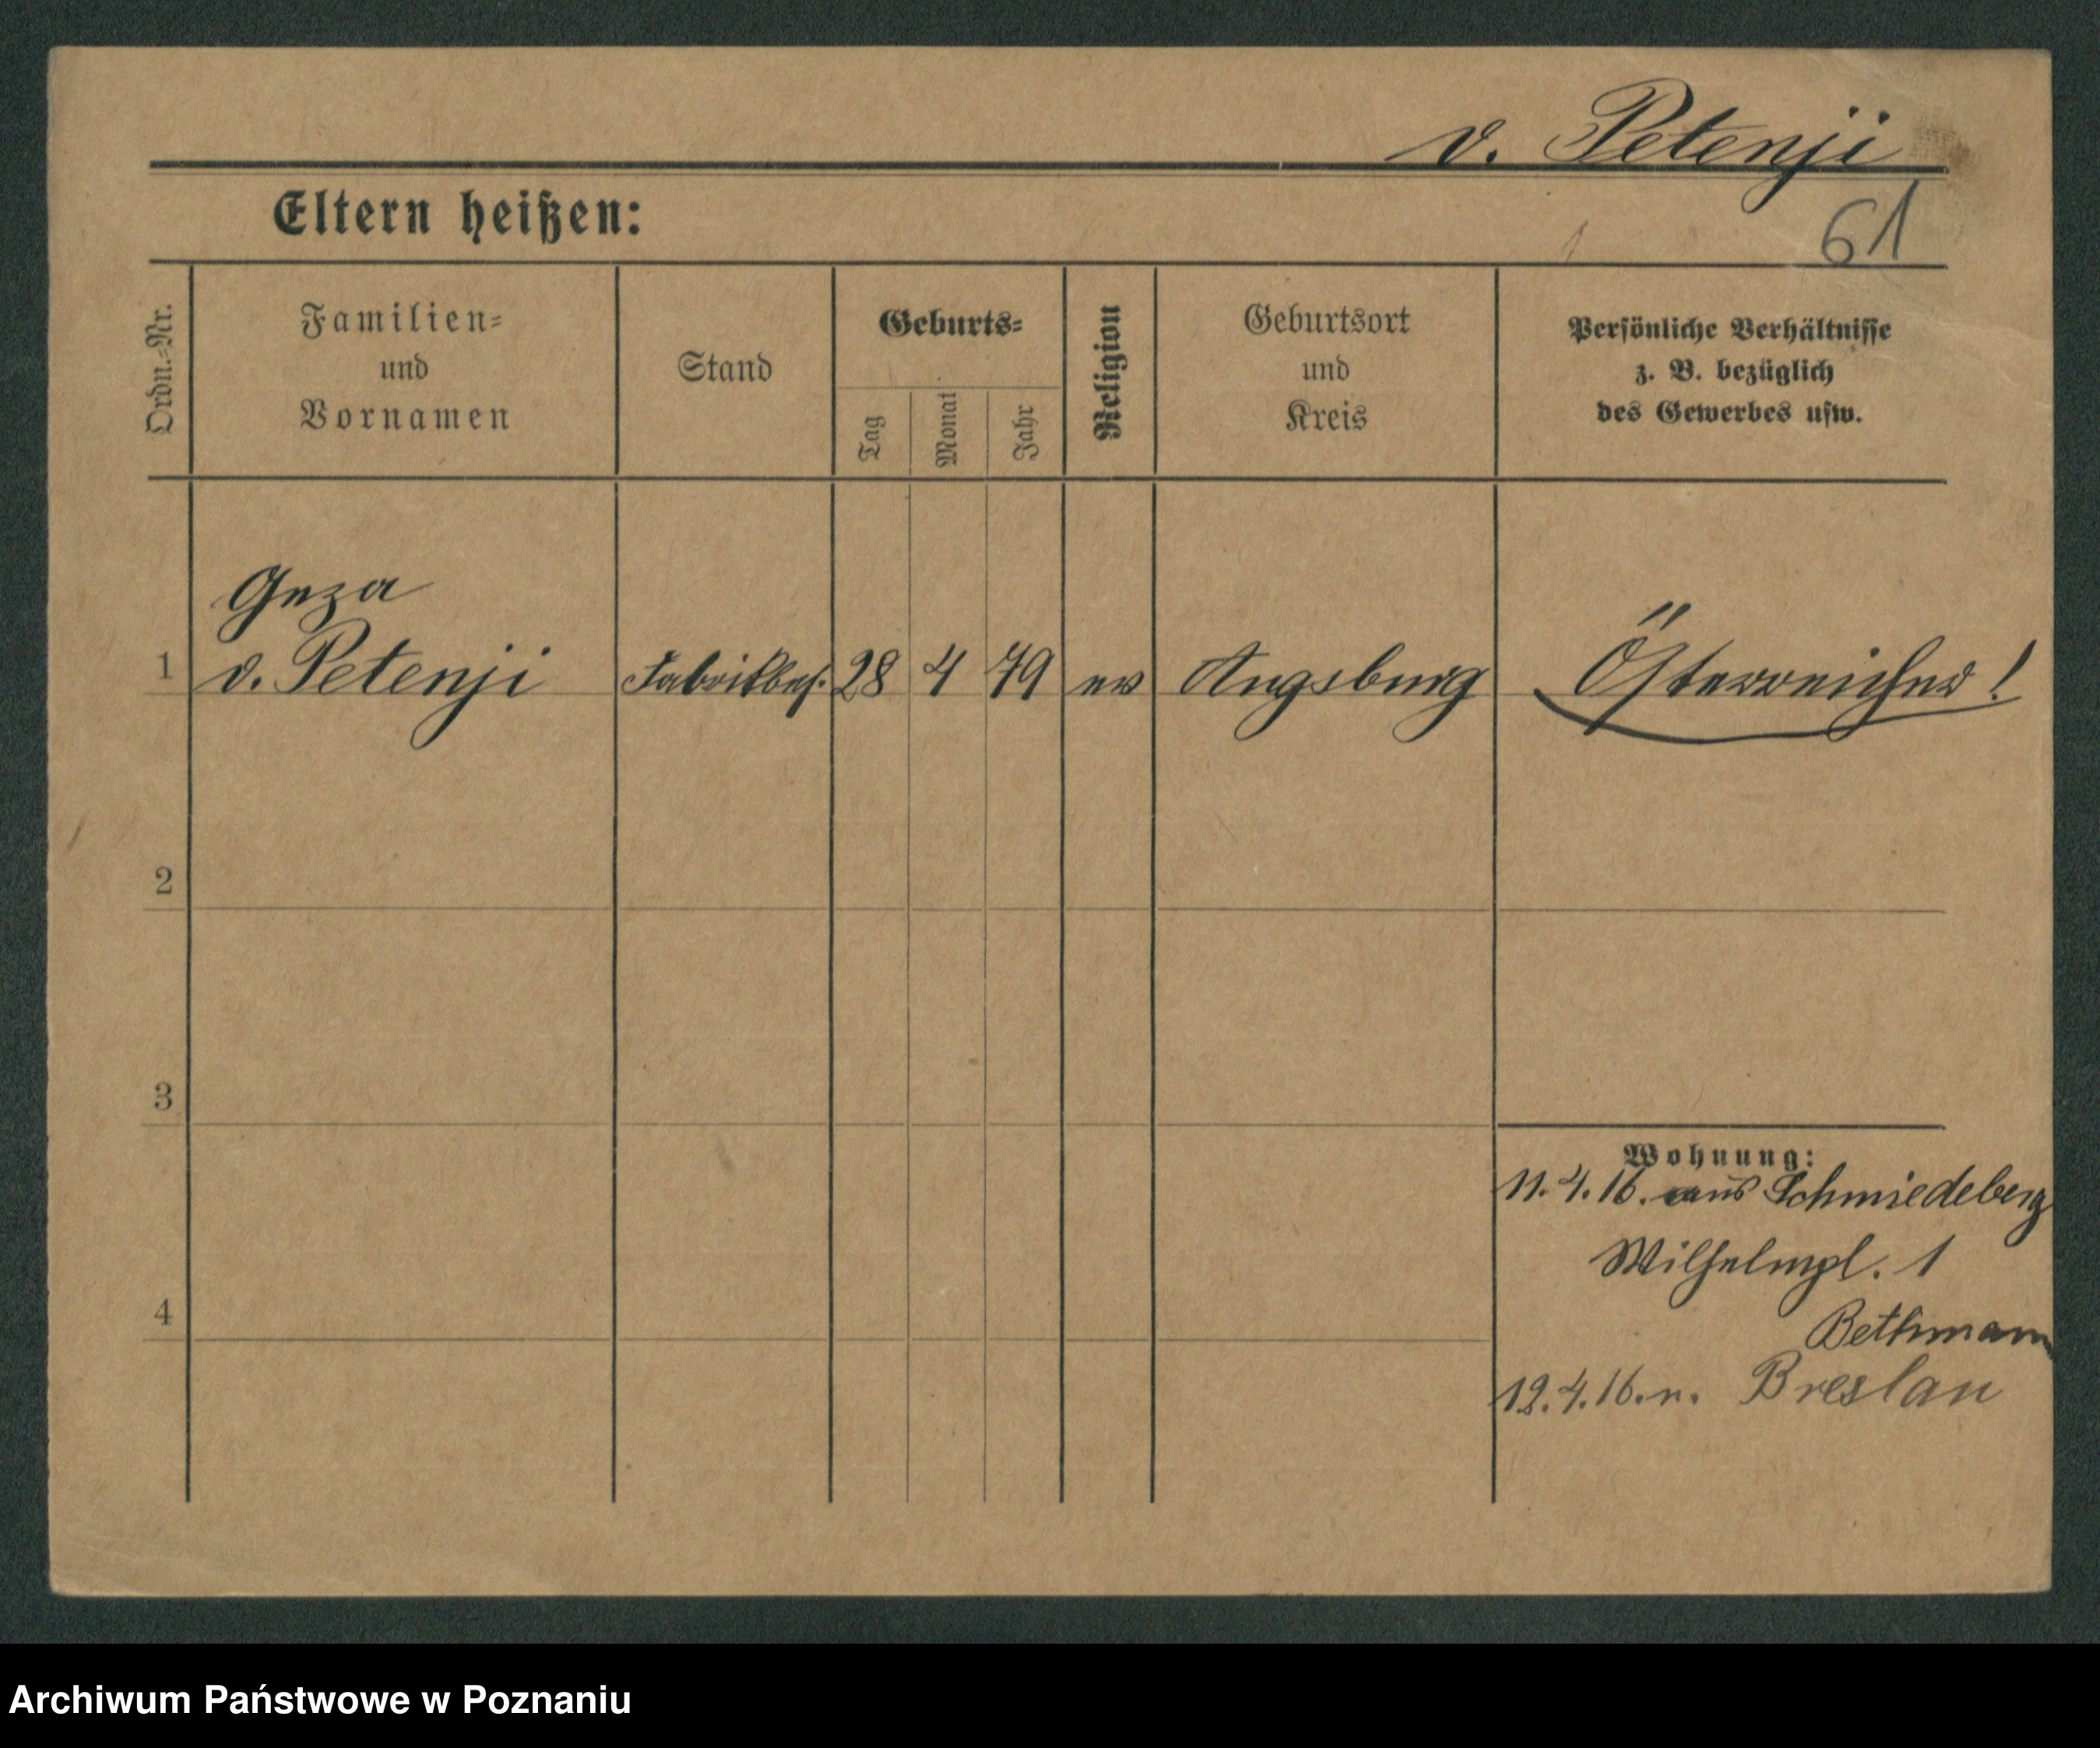 v. Petenji
Eltern heißen:
61
Ordn.-Nr.
Familien-
und
Vornamen
Stand
Geburts-
Tag
Monat
Jahr
Religion
Geburtsort
und
Kreis
Persönliche Verhältnisse
z. B. bezüglich
des Gewerbes usw.
Geza
1 v. Petenji Fabrikbes. 28 4 79 ev Augsburg Österreicher!
2
3
Wohnung:
11.4.16. aus Schmiedeberg
Wilhelmpl. 1
4
Bethmann
12.4.16. n. Breslau
Archiwum Państwowe w Poznaniu